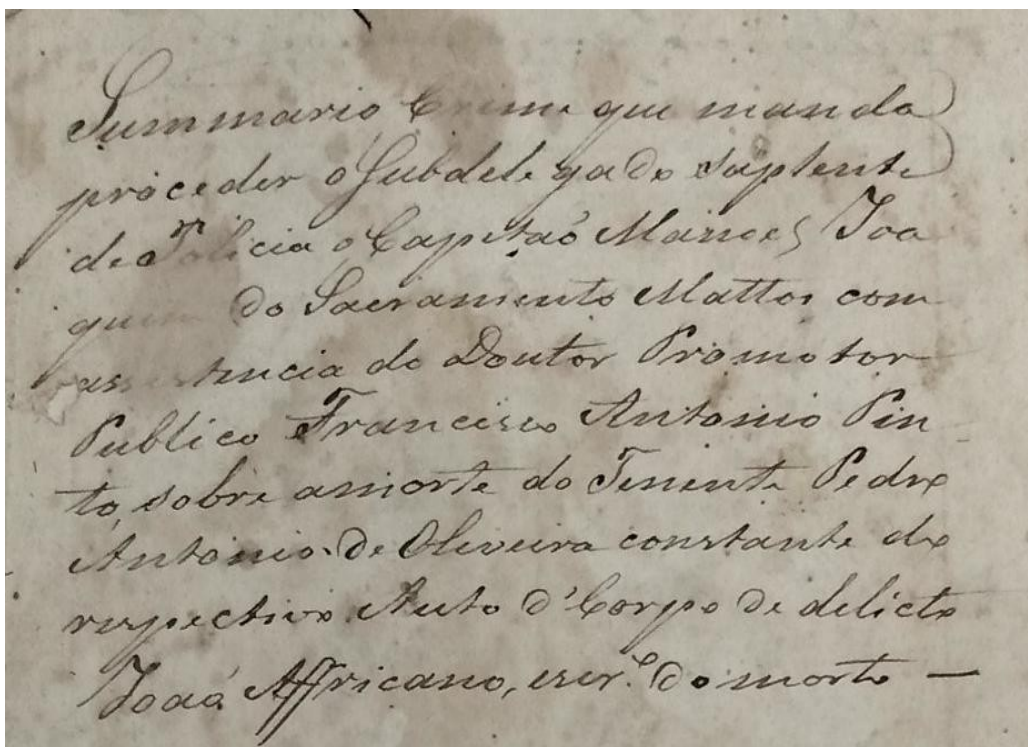 Summario Crime que manda
proceder o Subdelegado Suplente
de Policia o Capitaõ Manoel Joa
quim do Sacramento Mattos com
assistencia do Doutor Promotor
Publico Francisco Antonio Pin
to, sobre a morte do Tenente Pedro
Antonio de Oliveira constante do
respectivo Auto d'Corpo de delicto
Joaõ Affricano, escr.º do morto —